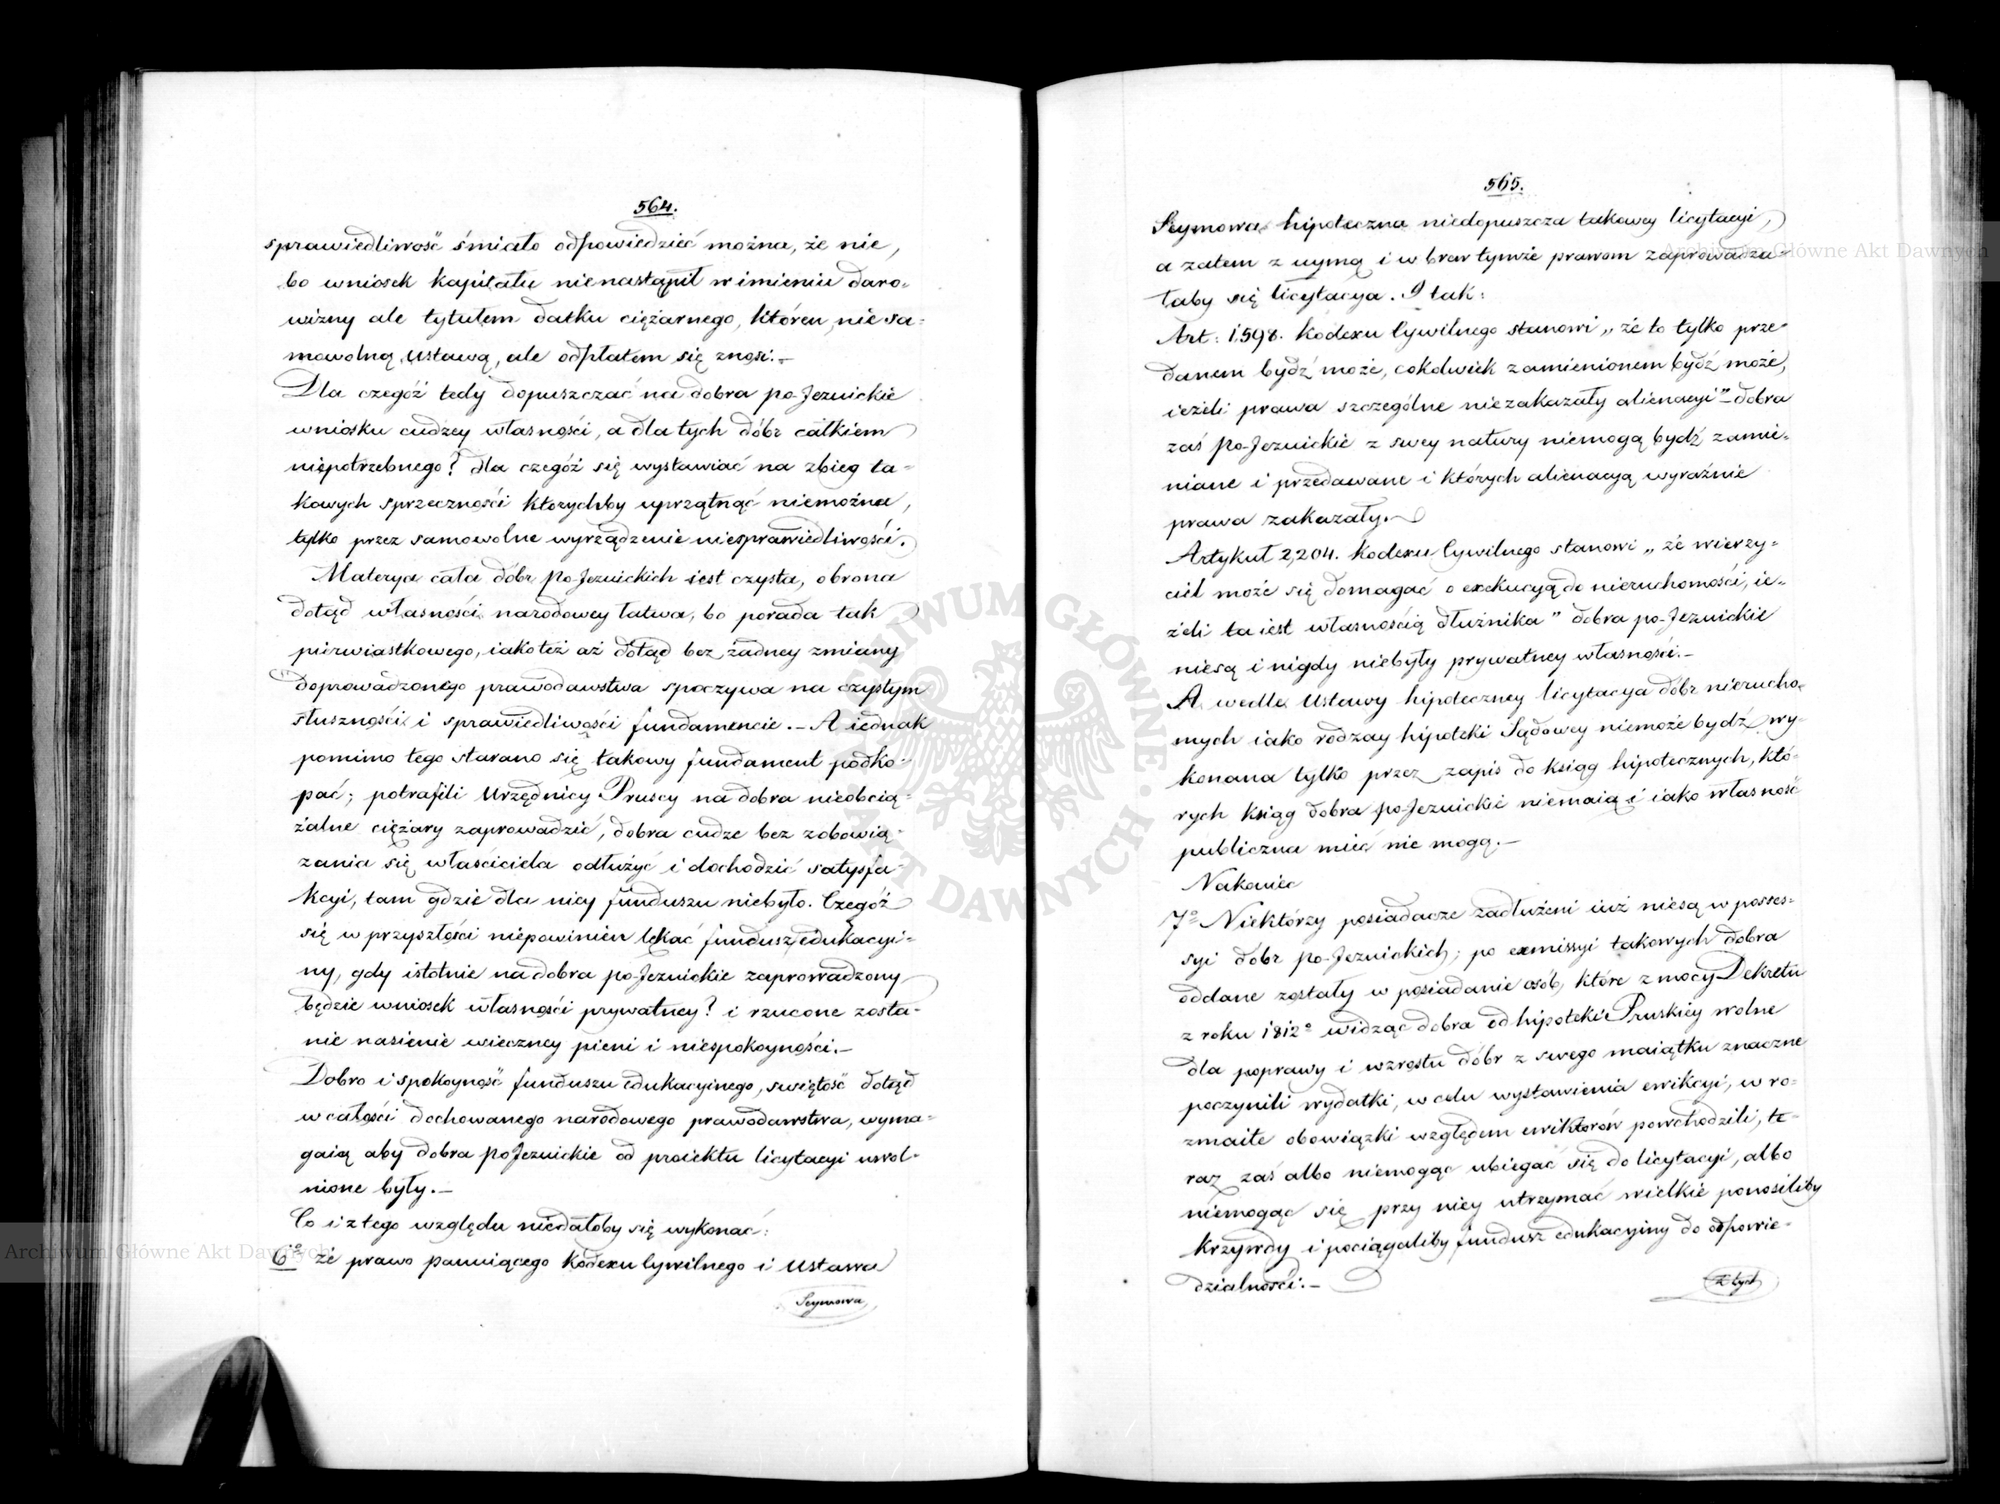 564.
sprawiedliwość śmiało odpowiedzieć można, że nie,
bo wniosek kapitału nienastąpił w imieniu daro-
wizny ale tytułem datku ciężarnego, któren nie sa-
mowolną ustawą, ale odpłatem się znosi.–
Dla czegóż tedy dopuszczać na dobra po-Jezuickie
wniosku cudzey własności, a dla tych dóbr całkiem
niepotrzebnego? dla czegóż się wystawiać na zbieg ta-
kowych sprzeczności którychby uprzątnąć niemożna,
tylko przez samowolne wyrządzenie niesprawiedliwości.
Materya cała dóbr po-Jezuickich iest czysta, obrona
dotąd własności narodowey łatwa, bo porada tak
pierwiastkowego, iakoteż aż dotąd bez żadney zmiany
doprowadzonego prawodawstwa spoczywa na czystym
słuszności i sprawiedliwości fundamencie.– A iednak
pomimo tego starano się takowy fundament podko-
pać; potrafili Urzędnicy Pruscy na dobra nieobcią-
żalne ciężary zaprowadzić, dobra cudze bez zobowią-
zania się właściciela odłużyć i dochodzić satysfa-
kcyi, tam gdzie dla niey funduszu niebyło. Czegóż
się w przyszłości niepowinien lękać fundusz edukacyi-
ny, gdy istotnie na dobra po-Jezuickie zaprowadzony
będzie wniosek własności prywatney? i rzucone zosta-
nie nasienie wieczney pieni i niespokoyności.–
Dobro i spokoyność funduszu edukacyinego, świętość dotąd
w całości dochowanego narodowego prawodawstwa, wyma-
gaią aby dobra po Jezuickie od proiektu licytacyi uwol-
nione były.–
Co i z tego względu niedałoby się wykonać:
6to że prawo panuiącego Kodexu Cywilnego i Ustawa
Seymowa
565.
Seymowa hipoteczna niedopuszcza takowey licytacyi,
a zatem z uymą i w brew tymże prawom zaprowadza-
łaby się licytacya. I tak:
Art: 1,598. Kodexu Cywilnego stanowi „że to tylko prze-
danem bydź może, cokolwiek zamienionem bydź może,
ieżeli prawa szczególne niezakazały alienacyi” dobra
zaś po-Jezuickie z swey natury niemogą bydź zamie-
niane i przedawane i których alienacyą wyraźnie
prawa zakazały.
Artykuł 2,204. Kodexu Cywilnego stanowi „że wierzy-
ciel może się domagać o exekucyą do nieruchomości, ie-
żeli ta iest własnością dłużnika” dobra po-Jezuickie
niesą i nigdy niebyły prywatney własności.–
A wedle Ustawy hipoteczney licytacya dóbr nierucho-
mych iako rodzay hipoteki Sądowey niemoże bydź wy-
konana tylko przez zapis do ksiąg hipotecznych, któ-
rych ksiąg dobra po-Jezuickie niemaią i iako własność
publiczna mieć nie mogą.–
Nakoniec
7o Niektórzy posiadacze zadłużeni iuż niesą w posses-
syi dóbr po-Jezuickich; po exmissyi takowych dobra
oddane zostały w posiadanie osób, które z mocy Dekretu
z roku 1812o widząc dobra od hipoteki Pruskiey wolne
dla poprawy i wzrostu dóbr z swego maiątku znaczne
poczynili wydatki, w celu wystawienia ewikcyi, w ro-
zmaite obowiązki względem ewiktorów powchodzili, te-
raz zaś albo niemogąc ubiegać się do licytacyi, albo
niemogąc się przy niey utrzymać wielkie ponosiliby
krzywdy i pociągaliby fundusz edukacyiny do odpowie-
dzialności.–
z tych
Archiwum Główne Akt Dawnych
Archiwum Główne Akt Dawnych
ARCHIWUM GŁÓWNE AKT DAWNYCH